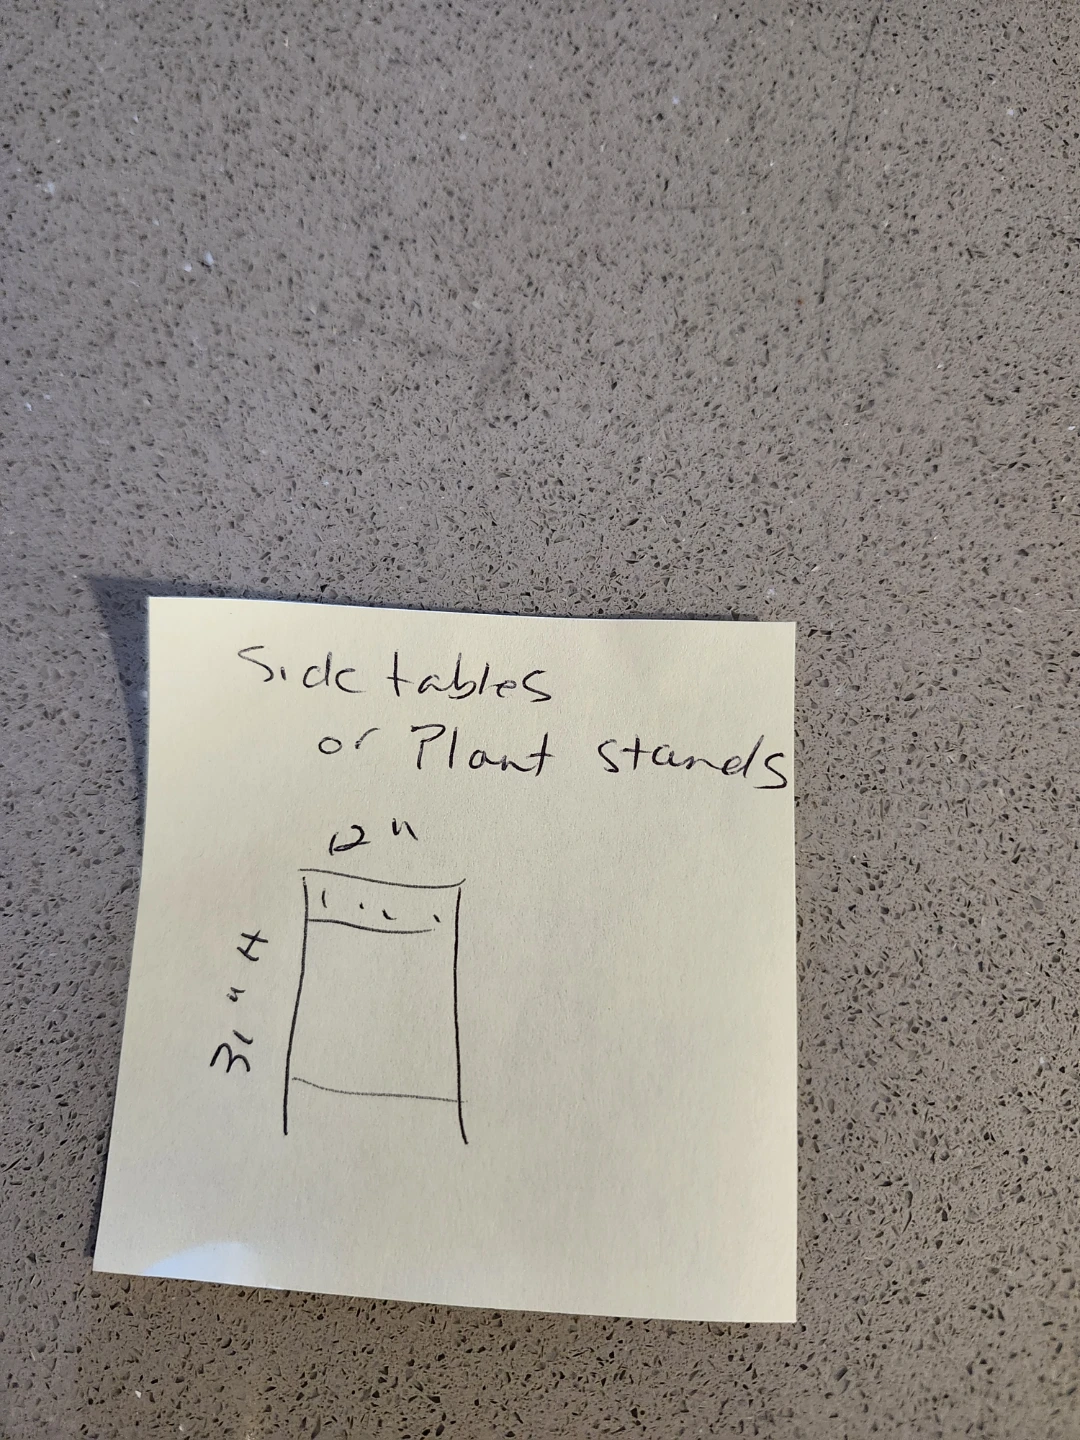 Side tables
or Plant stands
12"
31" H